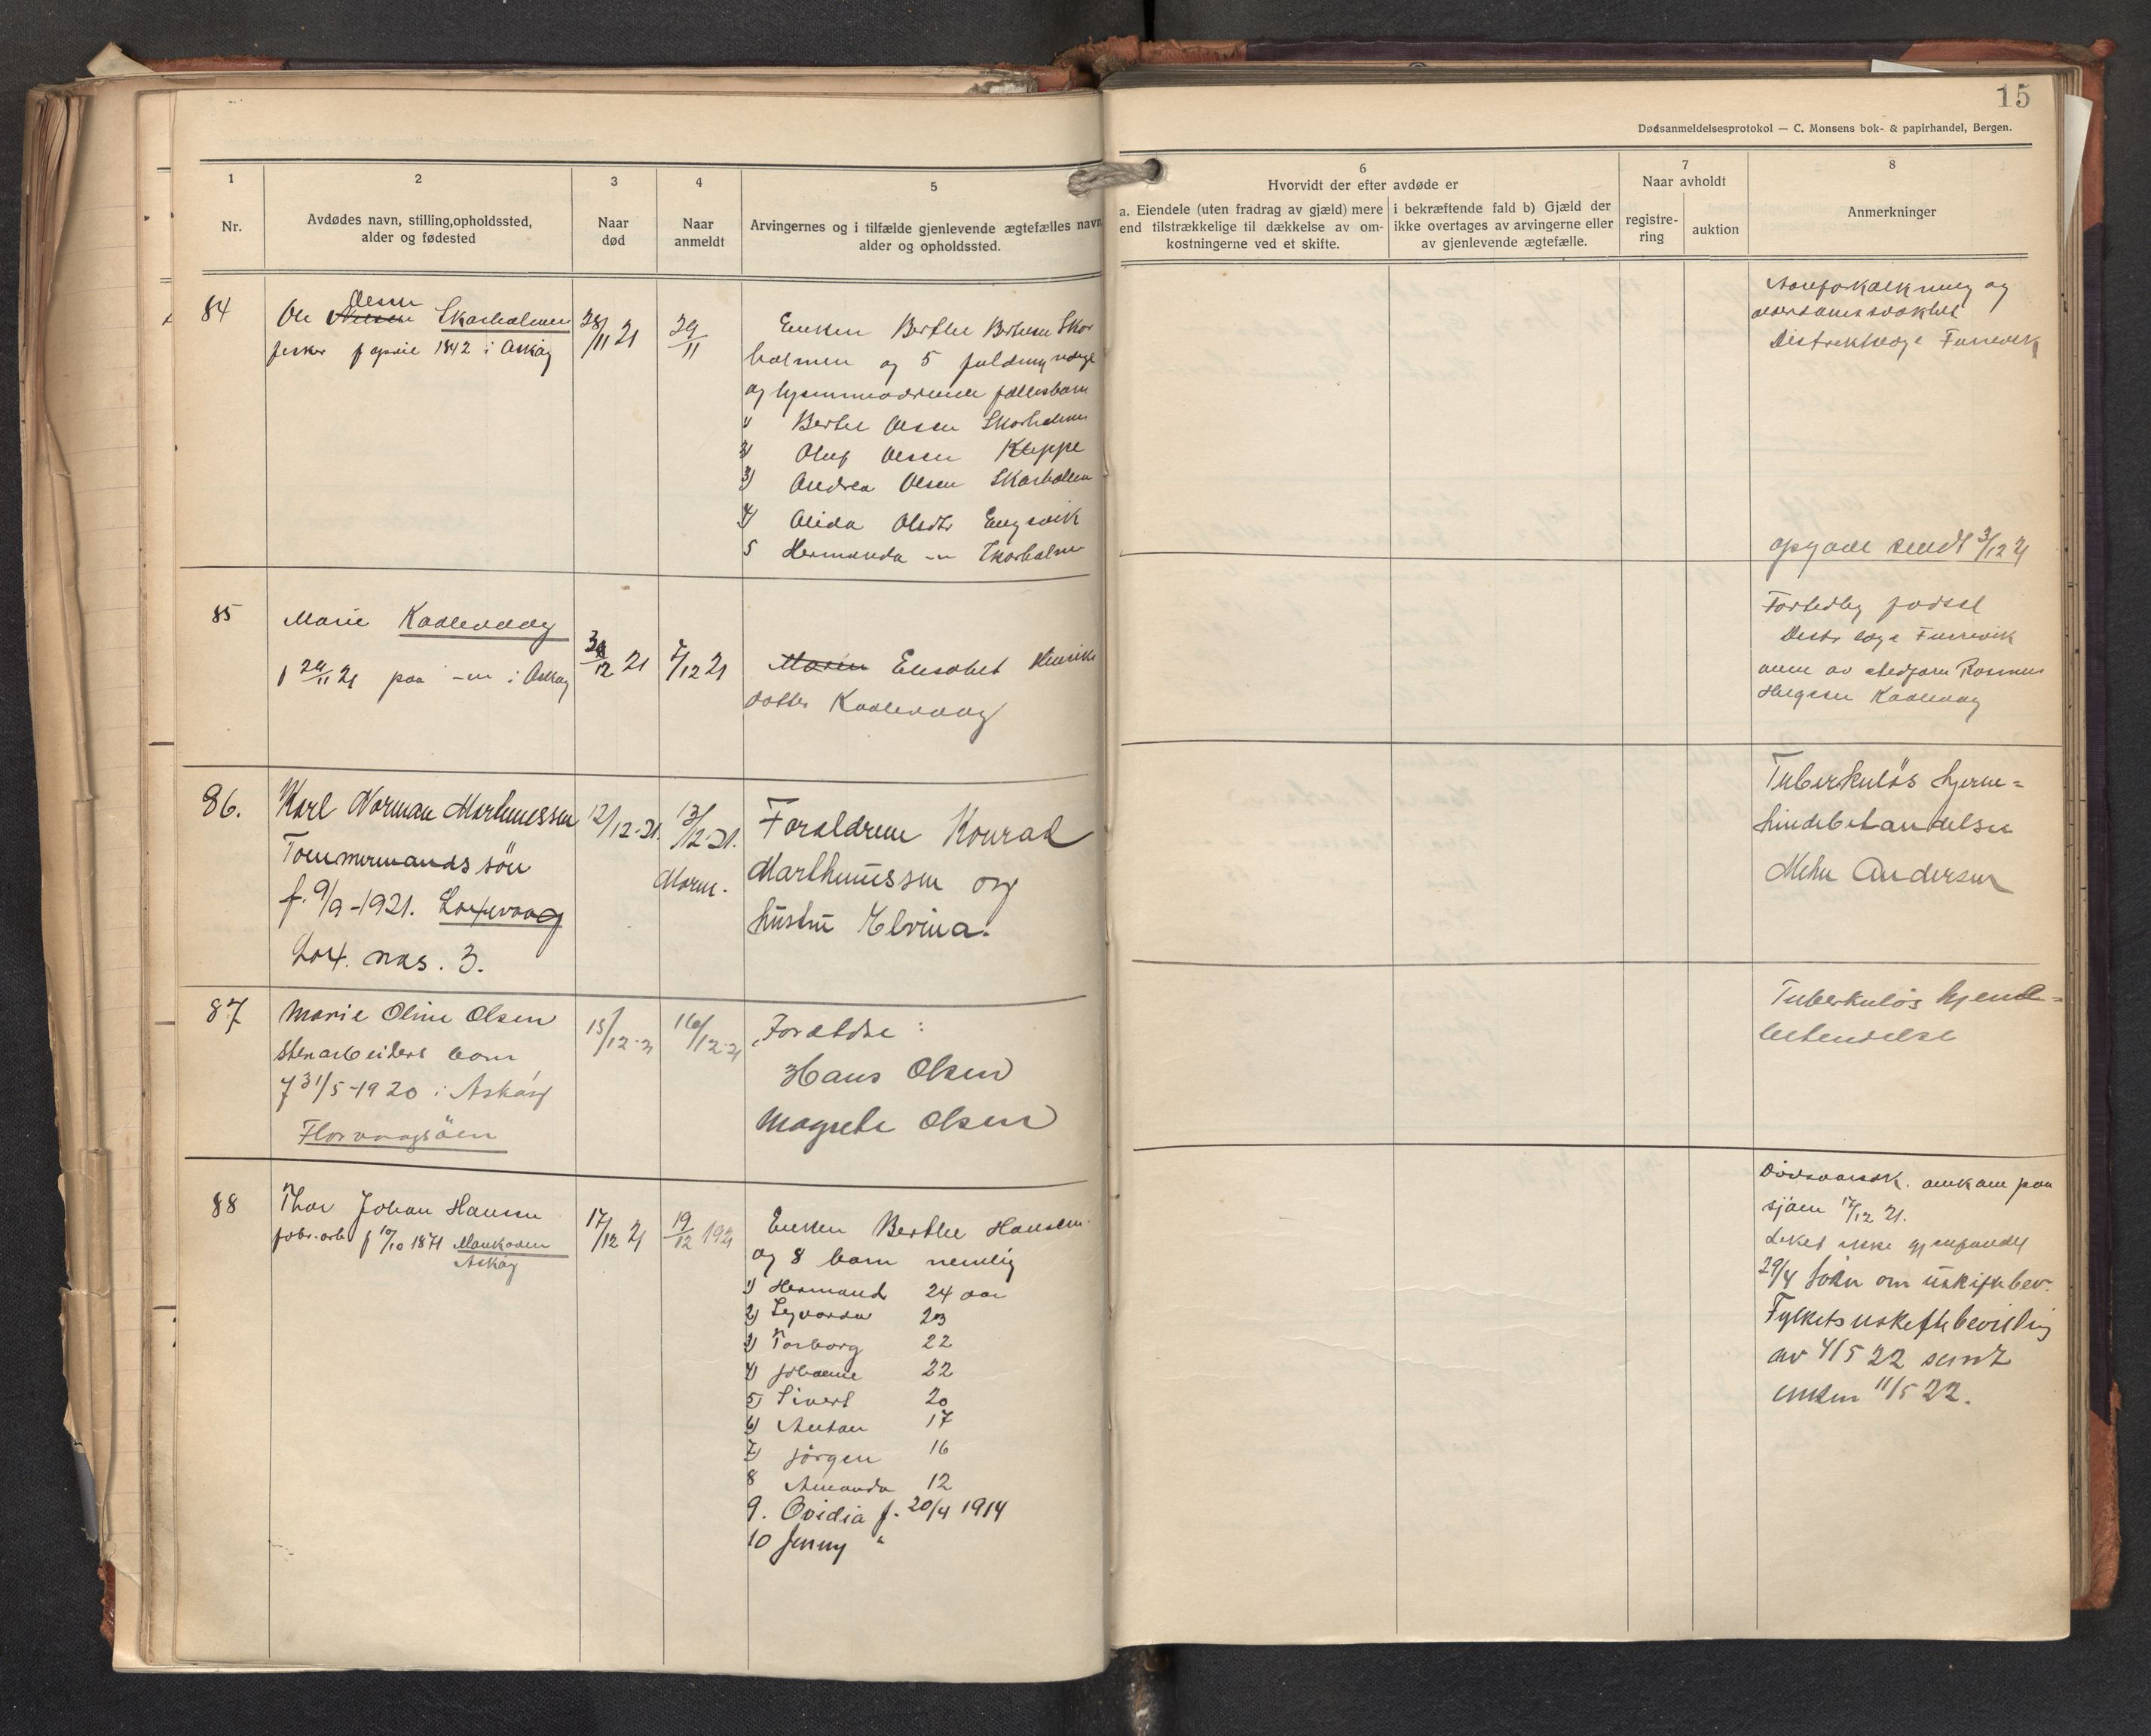 15
Dødsanmeldelsesprotokol — C. Monsens bok- & papirhandel, Bergen.
1
Nr.
2
Avdødes navn, stilling,opholdssted,
alder og fødested
3
Naar
død
4
Naar
anmeldt
5
Arvingernes og i tilfælde gjenlevende ægtefælles navn
alder og opholdssted.
6
Hvorvidt der efter avdøde er
a. Eiendele (uten fradrag av gjæld) mere
end tilstrækkelige til dækkelse av om-
kostningerne ved et skifte.
i bekræftende fald b) Gjæld der
ikke overtages av arvingerne eller
av gjenlevende ægtefælle.
7
Naar avholdt
registre-
ring
auktion
8
Anmerkninger
84
Olsen
Ole Nilsen Skarholmen
fisker f april 1842 i Askøy
28/11 21
29/11
Enken Berthe Skar
holmen og 5 fuldmyndige
og hjemmeværende fællesbarn
1 Berthe Olsen Skarholmen
2) Oluf Olsen Kleppe
3) Andrea Olsen Skarholmen
4) Alida Olsdtr Engevik
5 Hermanda -"- Skarholmen
Aareforkalkning og
alderdomssvakhet
Distriktslæge Furrevik
opgave sendt 3/12 21
85
Marie Kaalevaag
f 29/11 21 paa -"- i Askøy
12 21
7/12 21
Maren Elisabet Henriks
datter Kaalevaag
Fortidlig fødsel
Distr læge Furrevik
anm av stedfaren Rasmus
Helgesen Kaalevaag
86.
Karl Norman Marthinussen
Tømmermands søn
f. 9/9-1921. Loxevaag
Lox. nas. 3.
12/12-21.
13/12-21.
Norm.
Forældrene Konrad
Marthinussen og
hustru Elvina.
Tuberkuløs hjerne=
hindebetændelse
Mehn Andersen
87
Marie Oline Olsen
Stenarbeiders barn
f 31/5-1920 i Askøy
Florvaagsøen
15/12-21
16/12-21
Forældre :
Hans Olsen
Magrete Olsen
Tuberkuløs hjerne=
betendelse
88
Thor Johan Hansen
fabr. arb f 10/10 1871
Askøy
17/12 21
19/12 1921
Enken Berthe Hansen
og 8 barn nemlig
1) Hermand 24 aar
2) Sigvarda 23
3) Torborg 22
4) Johanne 22
5) Sivert 20
6) Anton 17
7) Jørgen 16
8 Amanda 12
9. Ovidia f. 20/4 1914
10 Jenny "
Dødsaarsak. omkom paa
sjøen 17/12 21.
Liket ikke gjenfundet
29/4 søkn om uskiftebev.
Fylkets uskiftebevilling
av 4/5 22 sendt
enken 11/5 22.